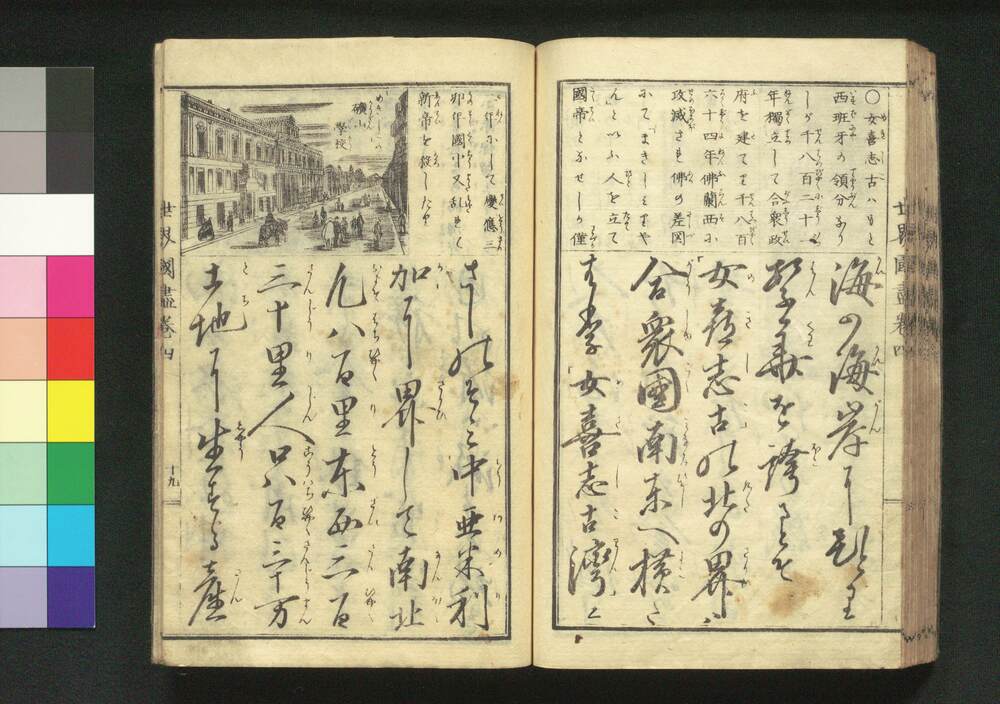 ○女喜志古ハもと
西班牙の領分なり
しが千八百二十一
年獨立して合衆政
府を建て千八百
六十四年佛蘭西に
政滅され佛の差図
にてまきしみりや
んといふ人を立て
國帝となせしか僅
海の海岸に独り
栄華を誇るとぞ
女喜志古の北の界ハ
合衆國南東へ横た
はる 女喜志古湾と
世界國盡卷四
三年にして慶應三
卯年國中又乱れて
新帝を殺したり
めきしこの
礦山
學校
さしのぞみ中亜米利
加に界して南北
凡八百里東西三百
三十里人口八百三十万
土地に生ずる産
世界國盡卷四
十九